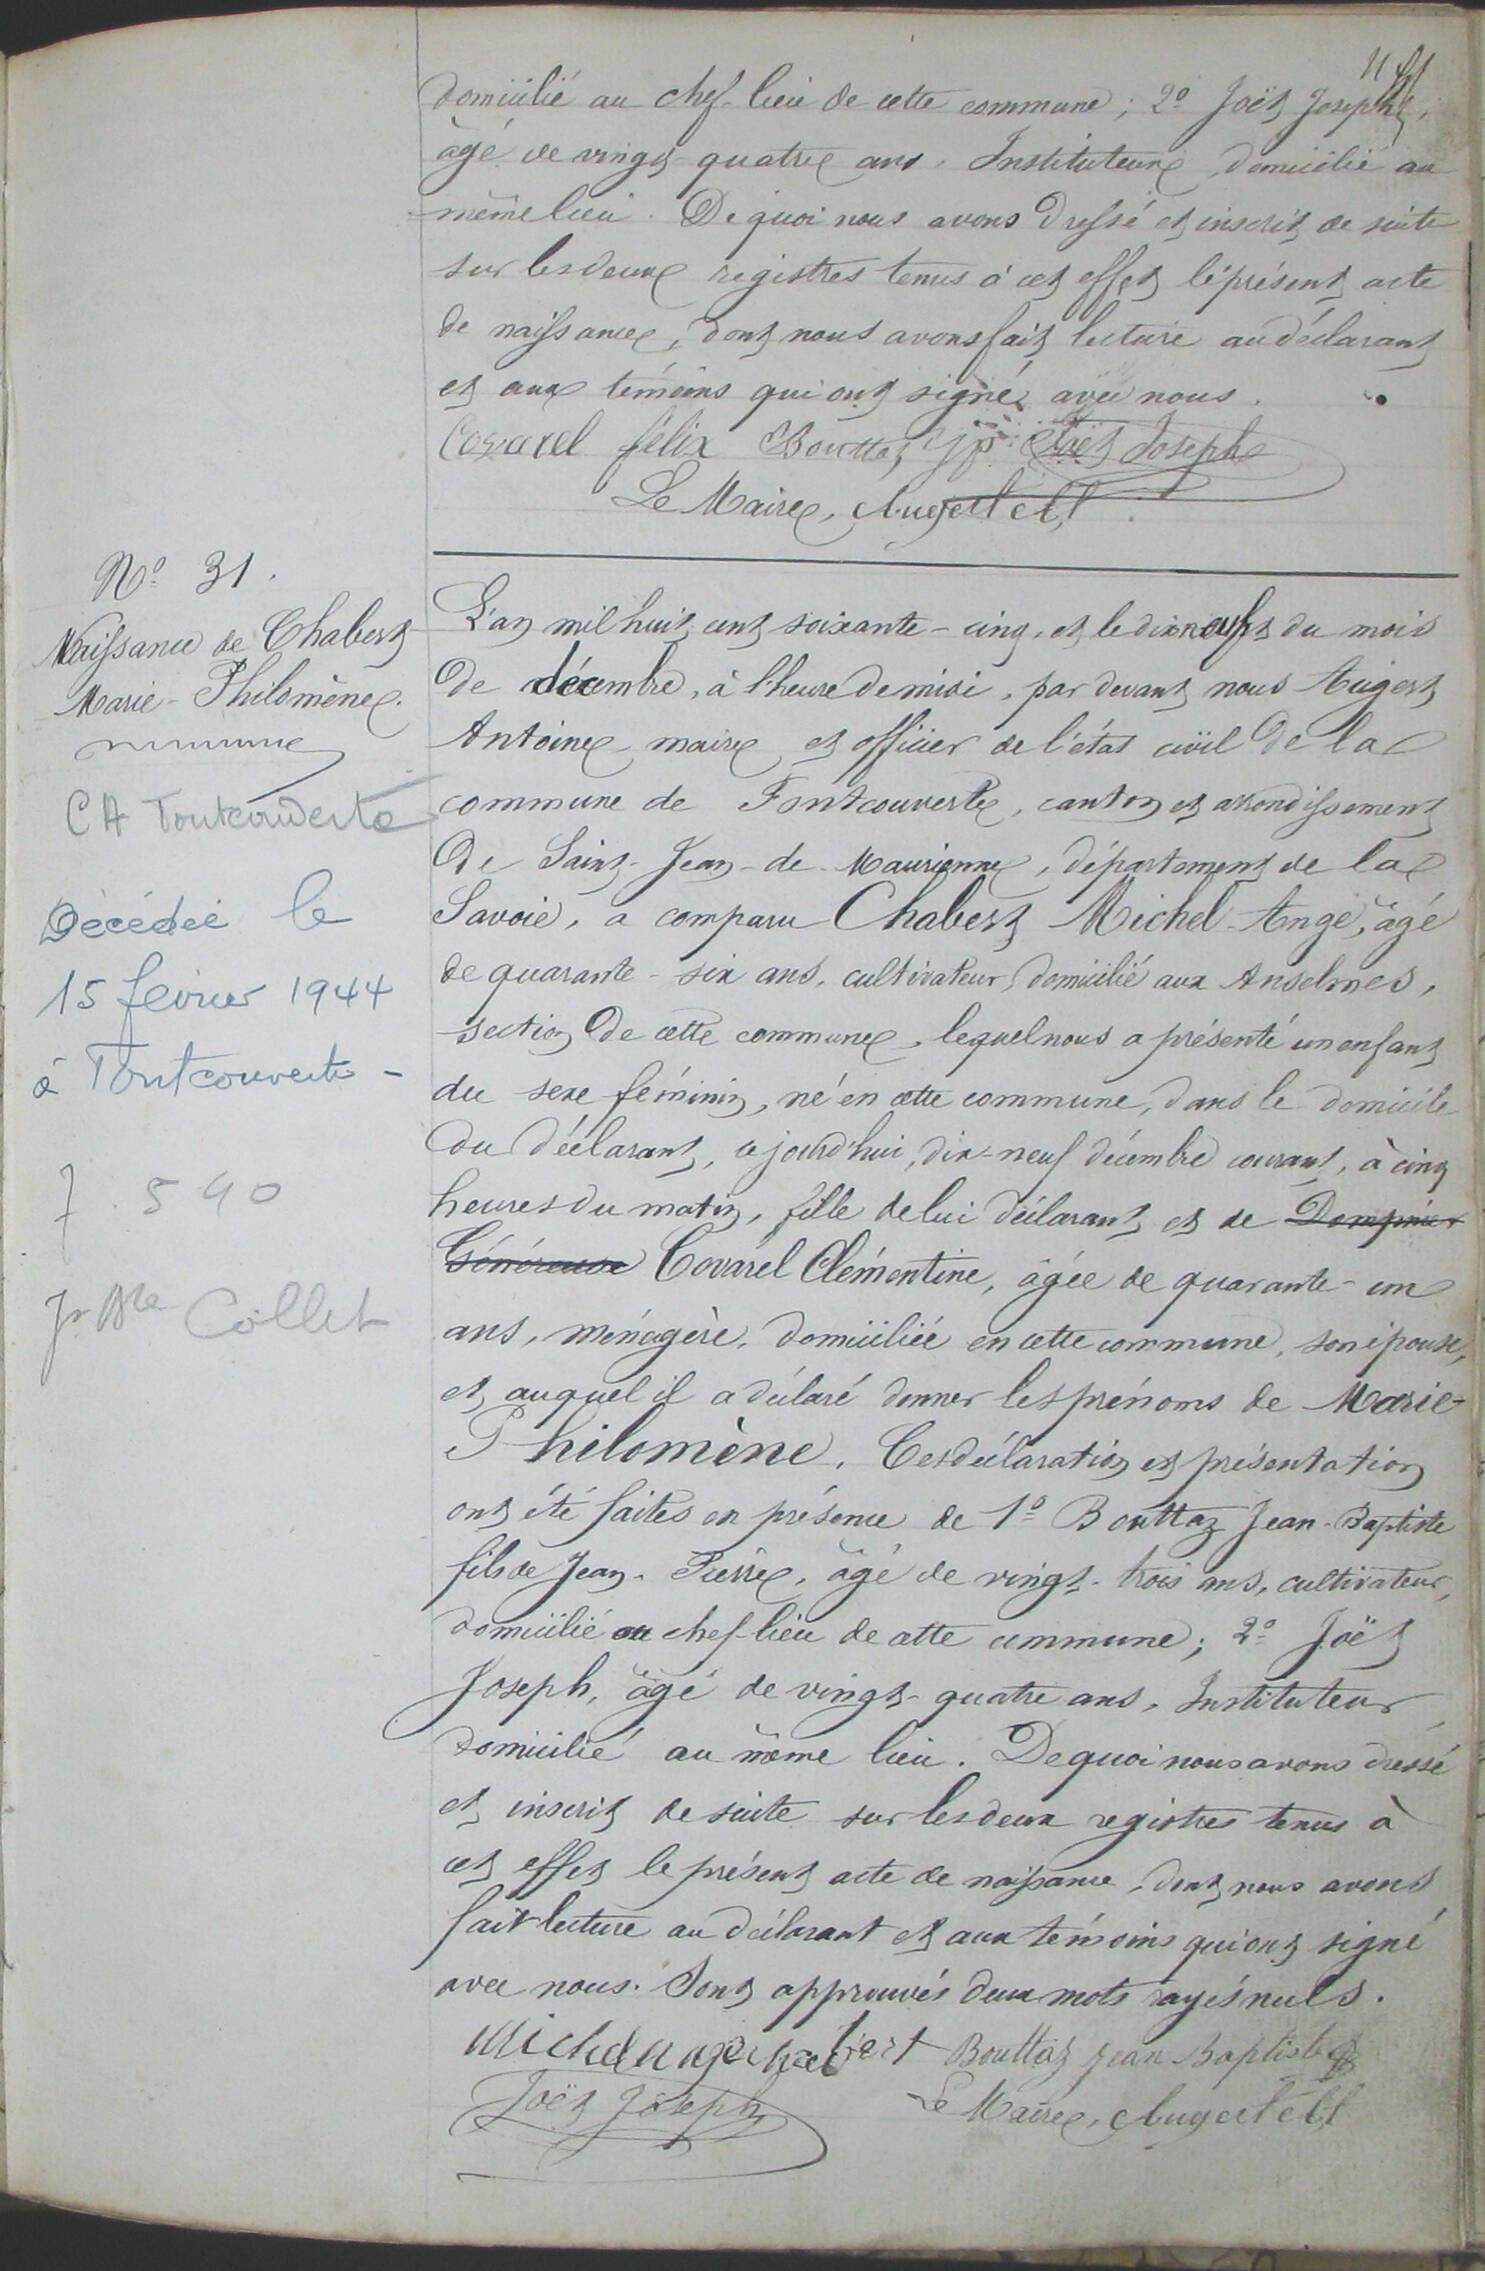 domicilié au chef-lieu de cette commune ; 2º Joët Joseph,
âgé de vingt-quatre ans, Instituteur, domicilié au
même lieu. De quoi nous avons dressé et inscrit de suite
sur les deux registres tenus à cet effet le présent acte
de naissance, dont nous avons fait lecture au déclarant
et aux témoins qui ont signé avec nous.
Covarel félix Bouttaz Joët Joseph
Le Maire, Augert
Nº 31.
Naissance de Chabert
Marie-Philomène.
CA Fontcouverte
Décédée le
15 février 1944
à Fontcouverte -
J. 590
Jn Bte Collet
L'an mil huit cent soixante-cinq, et le dix neuf du mois
de décembre, à l'heure de midi, par devant nous Augert
Antoine maire et officier de l'état civil de la
commune de Fontcouverte, canton et arrondissement
de Saint-Jean-de-Maurienne, département de la
Savoie, a comparu Chabert Michel-Ange, âgé
de quarante-six ans, cultivateur, domicilié aux Anselmes,
section de cette commune, lequel nous a présenté un enfant
du sexe féminin, né en cette commune, dans le domicile
du déclarant, cejourd'hui, dix-neuf décembre courant, à cinq
heures du matin, fille de lui déclarant et de Dompnier
Généreuse Covarel Clémentine, âgée de quarante-un
ans, ménagère, domiciliée en cette commune, son épouse,
et auquel il a déclaré donner les prénoms de Marie-
Philomène. Ces déclaration et présentation
ont été faites en présence de 1º Bouttaz Jean-Baptiste
fils de Jean-Pierre, âgé de vingt-trois ans, cultivateur,
domicilié au chef-lieu de cette commune ; 2º Joët
Joseph, âgé de vingt-quatre ans, Instituteur
domicilié au même lieu. De quoi nous avons dressé
et inscrit de suite sur les deux registres tenus à
cet effet le présent acte de naissance, dont nous avons
fait lecture au déclarant et aux témoins qui ont signé
avec nous. Sont approuvés deux mots rayés nuls.
Michel ange chabert Bouttaz Jean Baptiste
Joët Joseph Le Maire, Augert